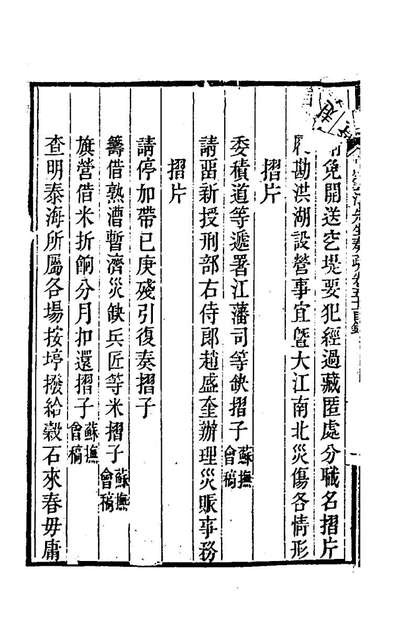 免開送乞堤要犯經過藏匿處分職名摺片
勘洪湖設營事宜曁大江南北災傷各情形
摺片
委積道等遞署江藩司等缺摺子蘇撫會稿
請畱新授刑部右侍郎趙盛奎辦理災賑事務
摺片
請停加帶已庚殘引復奏摺子
籌借熟漕暫濟災缺兵匠等米摺子蘇撫會稿
旗營借米折餉分月扣還摺子蘇撫會稿
查明泰海所屬各場按𡊇撥給穀石來春毋庸